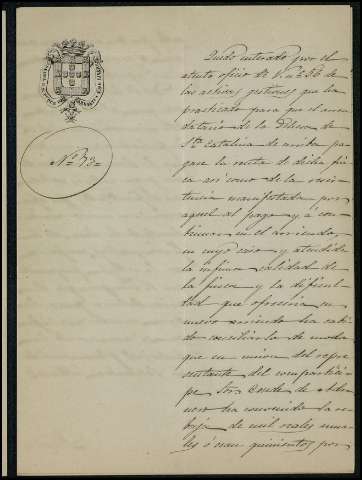 Nº 73=
Quedo enterado por el
atento oficio de V. nº 256 de
las activas gestiones que ha
practicado para que el arren
datario de la Dehesa de
Sta Catalina de arriba pa
gue la renta de dicha fin
ca así como de la resis
tencia manifestada por
aquel al pago y á con
tinuar en el arriendo,
en cuyo caso y atendida
la ínfima calidad de
la finca y la dificul
tad que ofrecería un
nuevo arriendo ha sabi
do conciliarlo de modo
que en union del repre
sentante del compartici
pe Sr. Conde de
ha convenido la re
baja de mil reales anua
les ó sean quinientos por